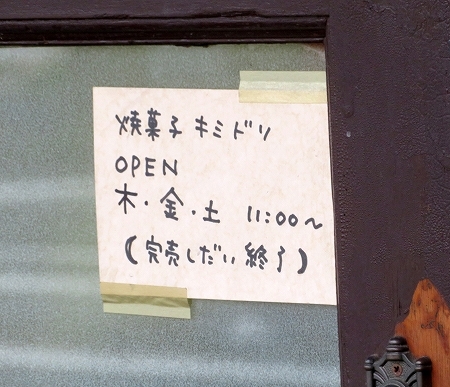 焼菓子 キミドリ
OPEN
木・金・土 11:00～
(完売しだい終了)